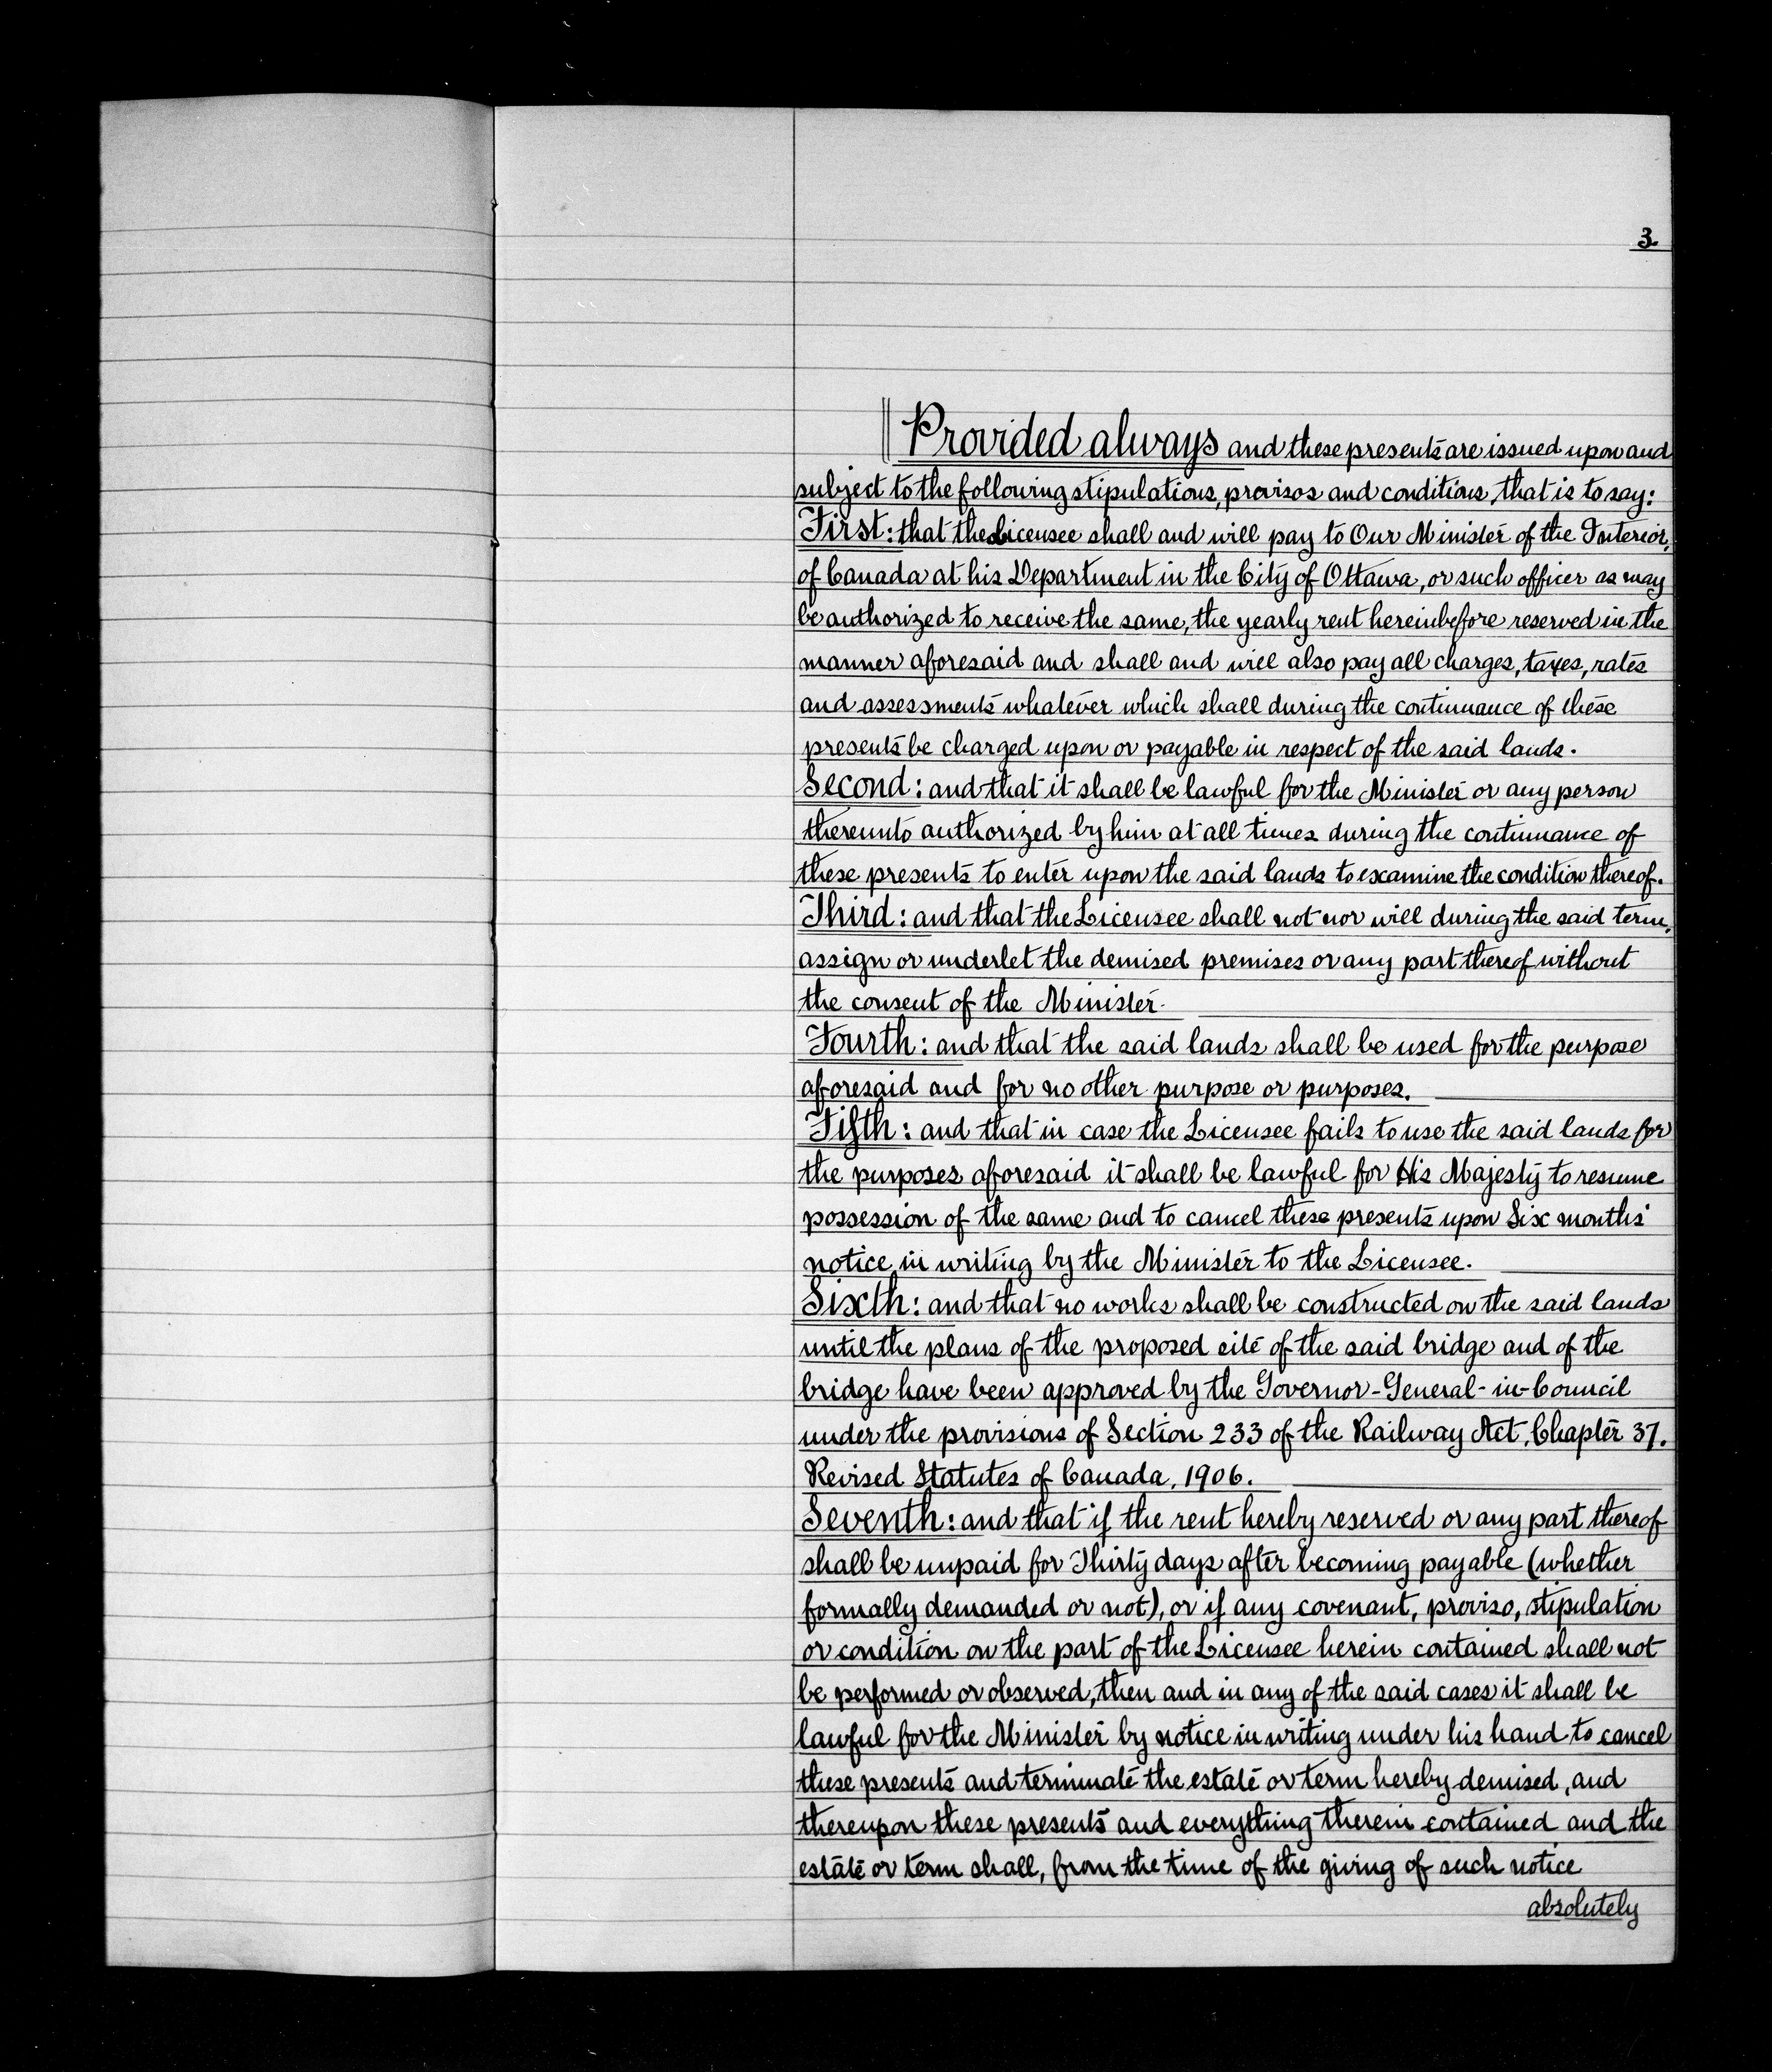 3.
Provided always and these presents are issued upon and
subject to the following stipulations, provisos and conditions, that is to say:
First: that the Licensee shall and will pay to Our Minister of the Interior,
of Canada at his Department in the City of Ottawa, or such officer as may
be authorized to receive the same, the yearly rent hereinbefore reserved in the
manner aforesaid and shall and will also pay all charges, taxes, rates
and assessments whatever which shall during the continuance of these
presents be charged upon or payable in respect of the said lands.
Second: and that it shall be lawful for the Minister or any person
thereunto authorized by him at all times during the continuance of
these presents to enter upon the said lands to examine the condition thereof.
Third: and that the Licensee shall not nor will during the said term,
assign or underlet the demised premises or any part thereof without
the consent of the Minister.
Fourth: and that the said lands shall be used for the purpose
aforesaid and for no other purpose or purposes.
Fifth: and that in case the Licensee fails to use the said lands for
the purposes aforesaid it shall be lawful for His Majesty to resume
possession of the same and to cancel these presents upon Six months'
notice in writing by the Minister to the Licensee.
Sixth: and that no works shall be constructed on the said lands
until the plans of the proposed site of the said bridge and of the
bridge have been approved by the Governor-General-in-Council
under the provisions of Section 233 of the Railway Act, Chapter 37.
Revised Statutes of Canada, 1906.
Seventh: and that if the rent hereby reserved or any part thereof
shall be unpaid for Thirty days after becoming payable (whether
formally demanded or not), or if any covenant, proviso, stipulation
or condition on the part of the Licensee herein contained shall not
be performed or observed, then and in any of the said cases it shall be
lawful for the Minister by notice in writing under his hand to cancel
these presents and terminate the estate or term hereby demised, and
thereupon these presents and everything therein contained and the
estate or term shall, from the time of the giving of such notice
absolutely